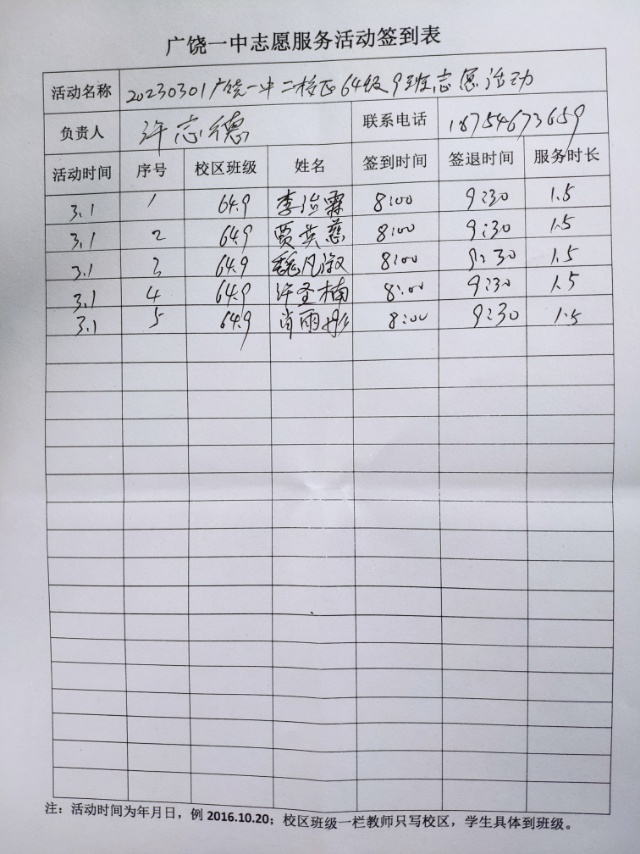 广饶一中志愿服务活动签到表
活动名称 20230301广饶一中二校区64级9班志愿活动
负责人 许志德 联系电话 18754673659
活动时间 序号 校区班级 姓名 签到时间 签退时间 服务时长
3.1 1 64.9 李治霖 8:00 9:30 1.5
3.1 2 64.9 贾英慈 8:00 9:30 1.5
3.1 3 64.9 魏凡淑 8:00 9:30 1.5
3.1 4 64.9 许圣楠 8:00 9:30 1.5
3.1 5 64.9 肖雨彤 8:00 9:30 1.5
注：活动时间为年月日，例 2016.10.20；校区班级一栏教师只写校区，学生具体到班级。